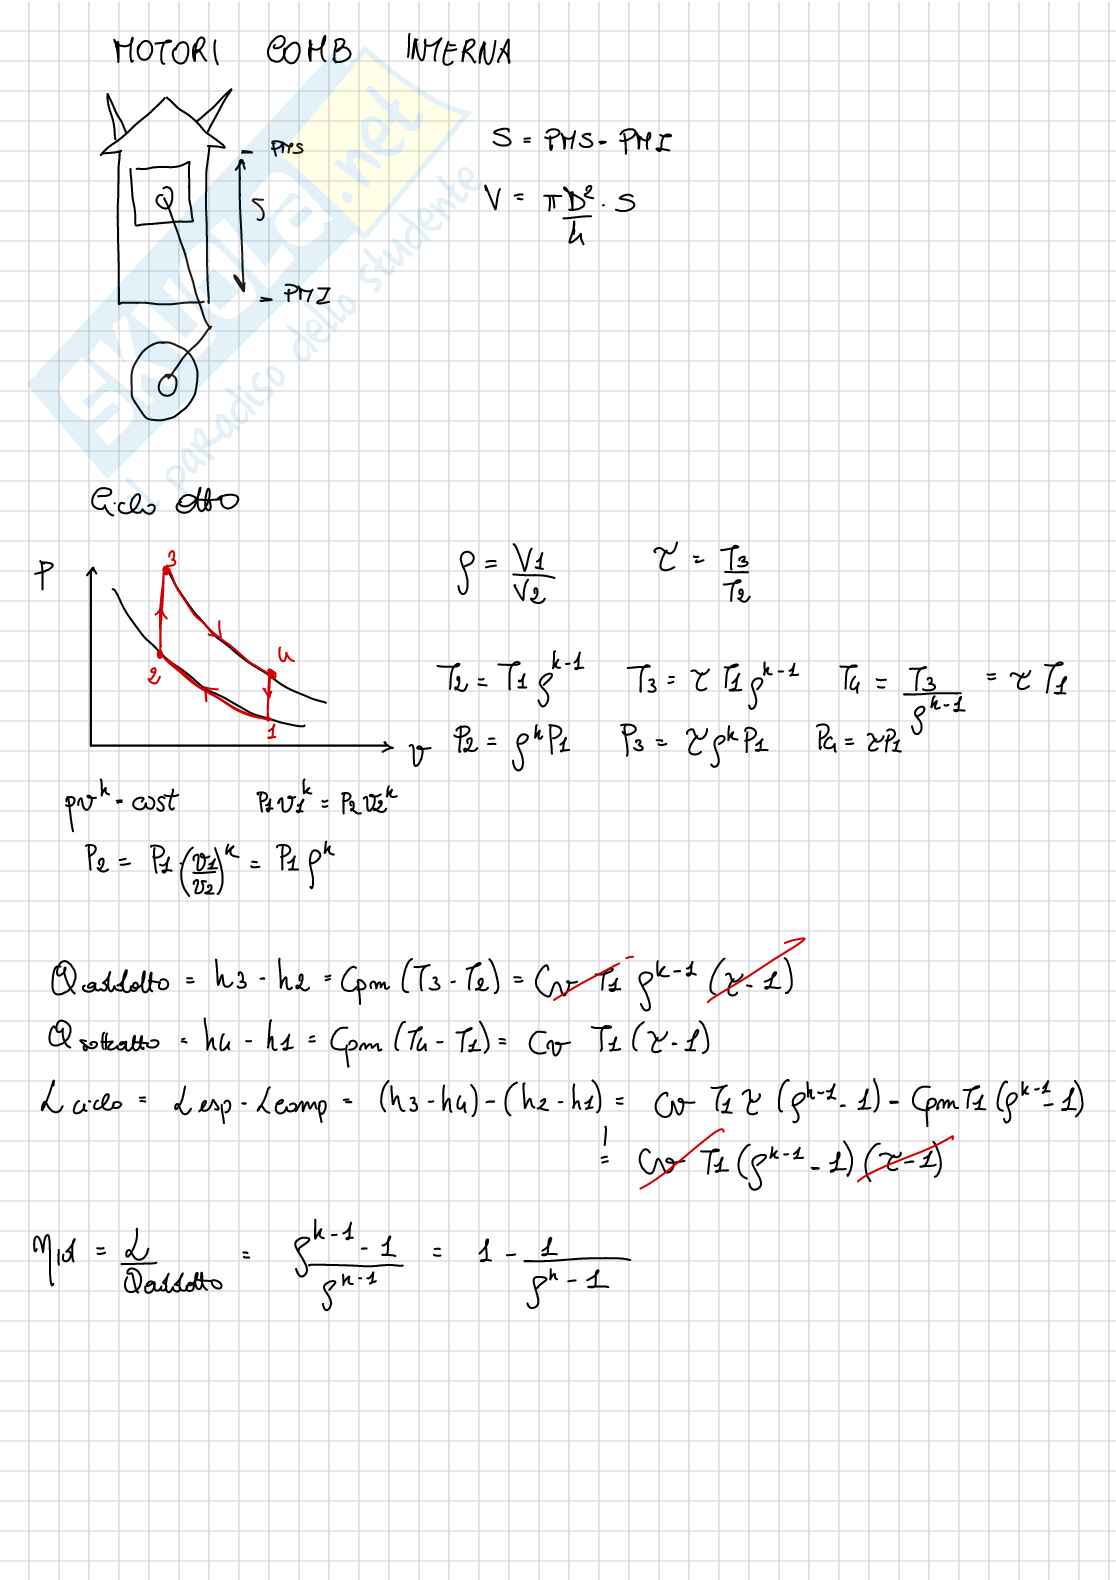 MOTORI COMB INTERNA
PMS
S
PMI
S = PMS - PMI
V = πD²/4 · S
SKUOLA.net
il paradiso dello studente
Ciclo otto
P
3
2
4
1
v
ρ = V1/V2
τ = T3/T2
T2 = T1 ρ^(k-1)
T3 = τ T1 ρ^(k-1)
T4 = T3/ρ^(k-1) = τ T1
P2 = ρ^k P1
P3 = τ ρ^k P1
P4 = τP1
pv^k = cost
P1 v1^k = P2 v2^k
P2 = P1 (v1/v2)^k = P1 ρ^k
Qaddotto = h3 - h2 = Cpm (T3 - T2) = Cv T1 ρ^(k-1) (τ - 1)
Qsottratto = h4 - h1 = Cpm (T4 - T1) = Cv T1 (τ - 1)
L ciclo = L esp - L comp = (h3 - h4) - (h2 - h1) = Cv T1 τ (ρ^(k-1) - 1) - Cpm T1 (ρ^(k-1) - 1)
= Cv T1 (ρ^(k-1) - 1) (τ - 1)
ηid = L/Qaddotto = (ρ^(k-1) - 1)/ρ^(k-1) = 1 - 1/(ρ^k - 1)